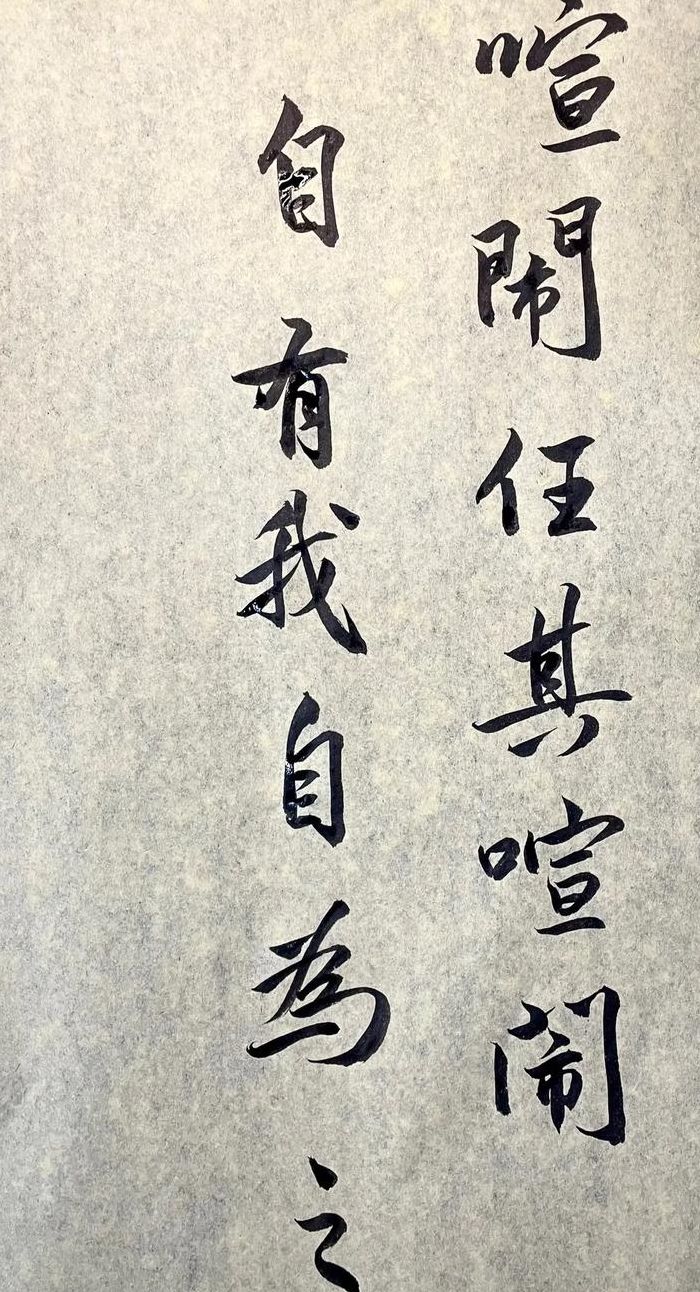 喧鬧任其喧鬧
自有我自為之